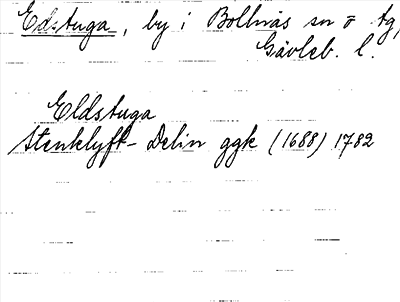 Edstuga, by i Bollnäs sn o tg,
Gävleb. l.
Eldstuga
Stenklyft- Delin ggk (1688) 1782